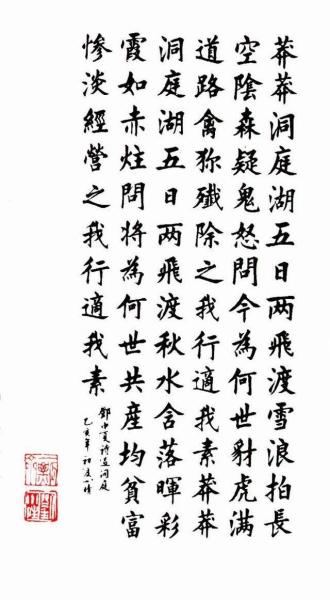 莽莽洞庭湖五日两飛渡雪浪拍長
空陰森疑鬼怒問今為何世豺虎滿
道路禽狝殲除之我行適我素莽莽
洞庭湖五日两飛渡秋水含落暉彩
霞如赤炷問將為何世共產均貧富
惨淡經營之我行適我素
鄧中夏詩過洞庭
乙亥年初夏